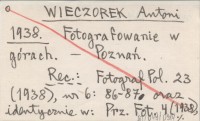 WIECZOREK Antoni
1938. Fotografowanie w
górach. Poznań.
Rec.: Fotograf Pol. 23
(1938), nr 6: 86-87, oraz
identycznie w: Prz. Fot. 4 (1938),